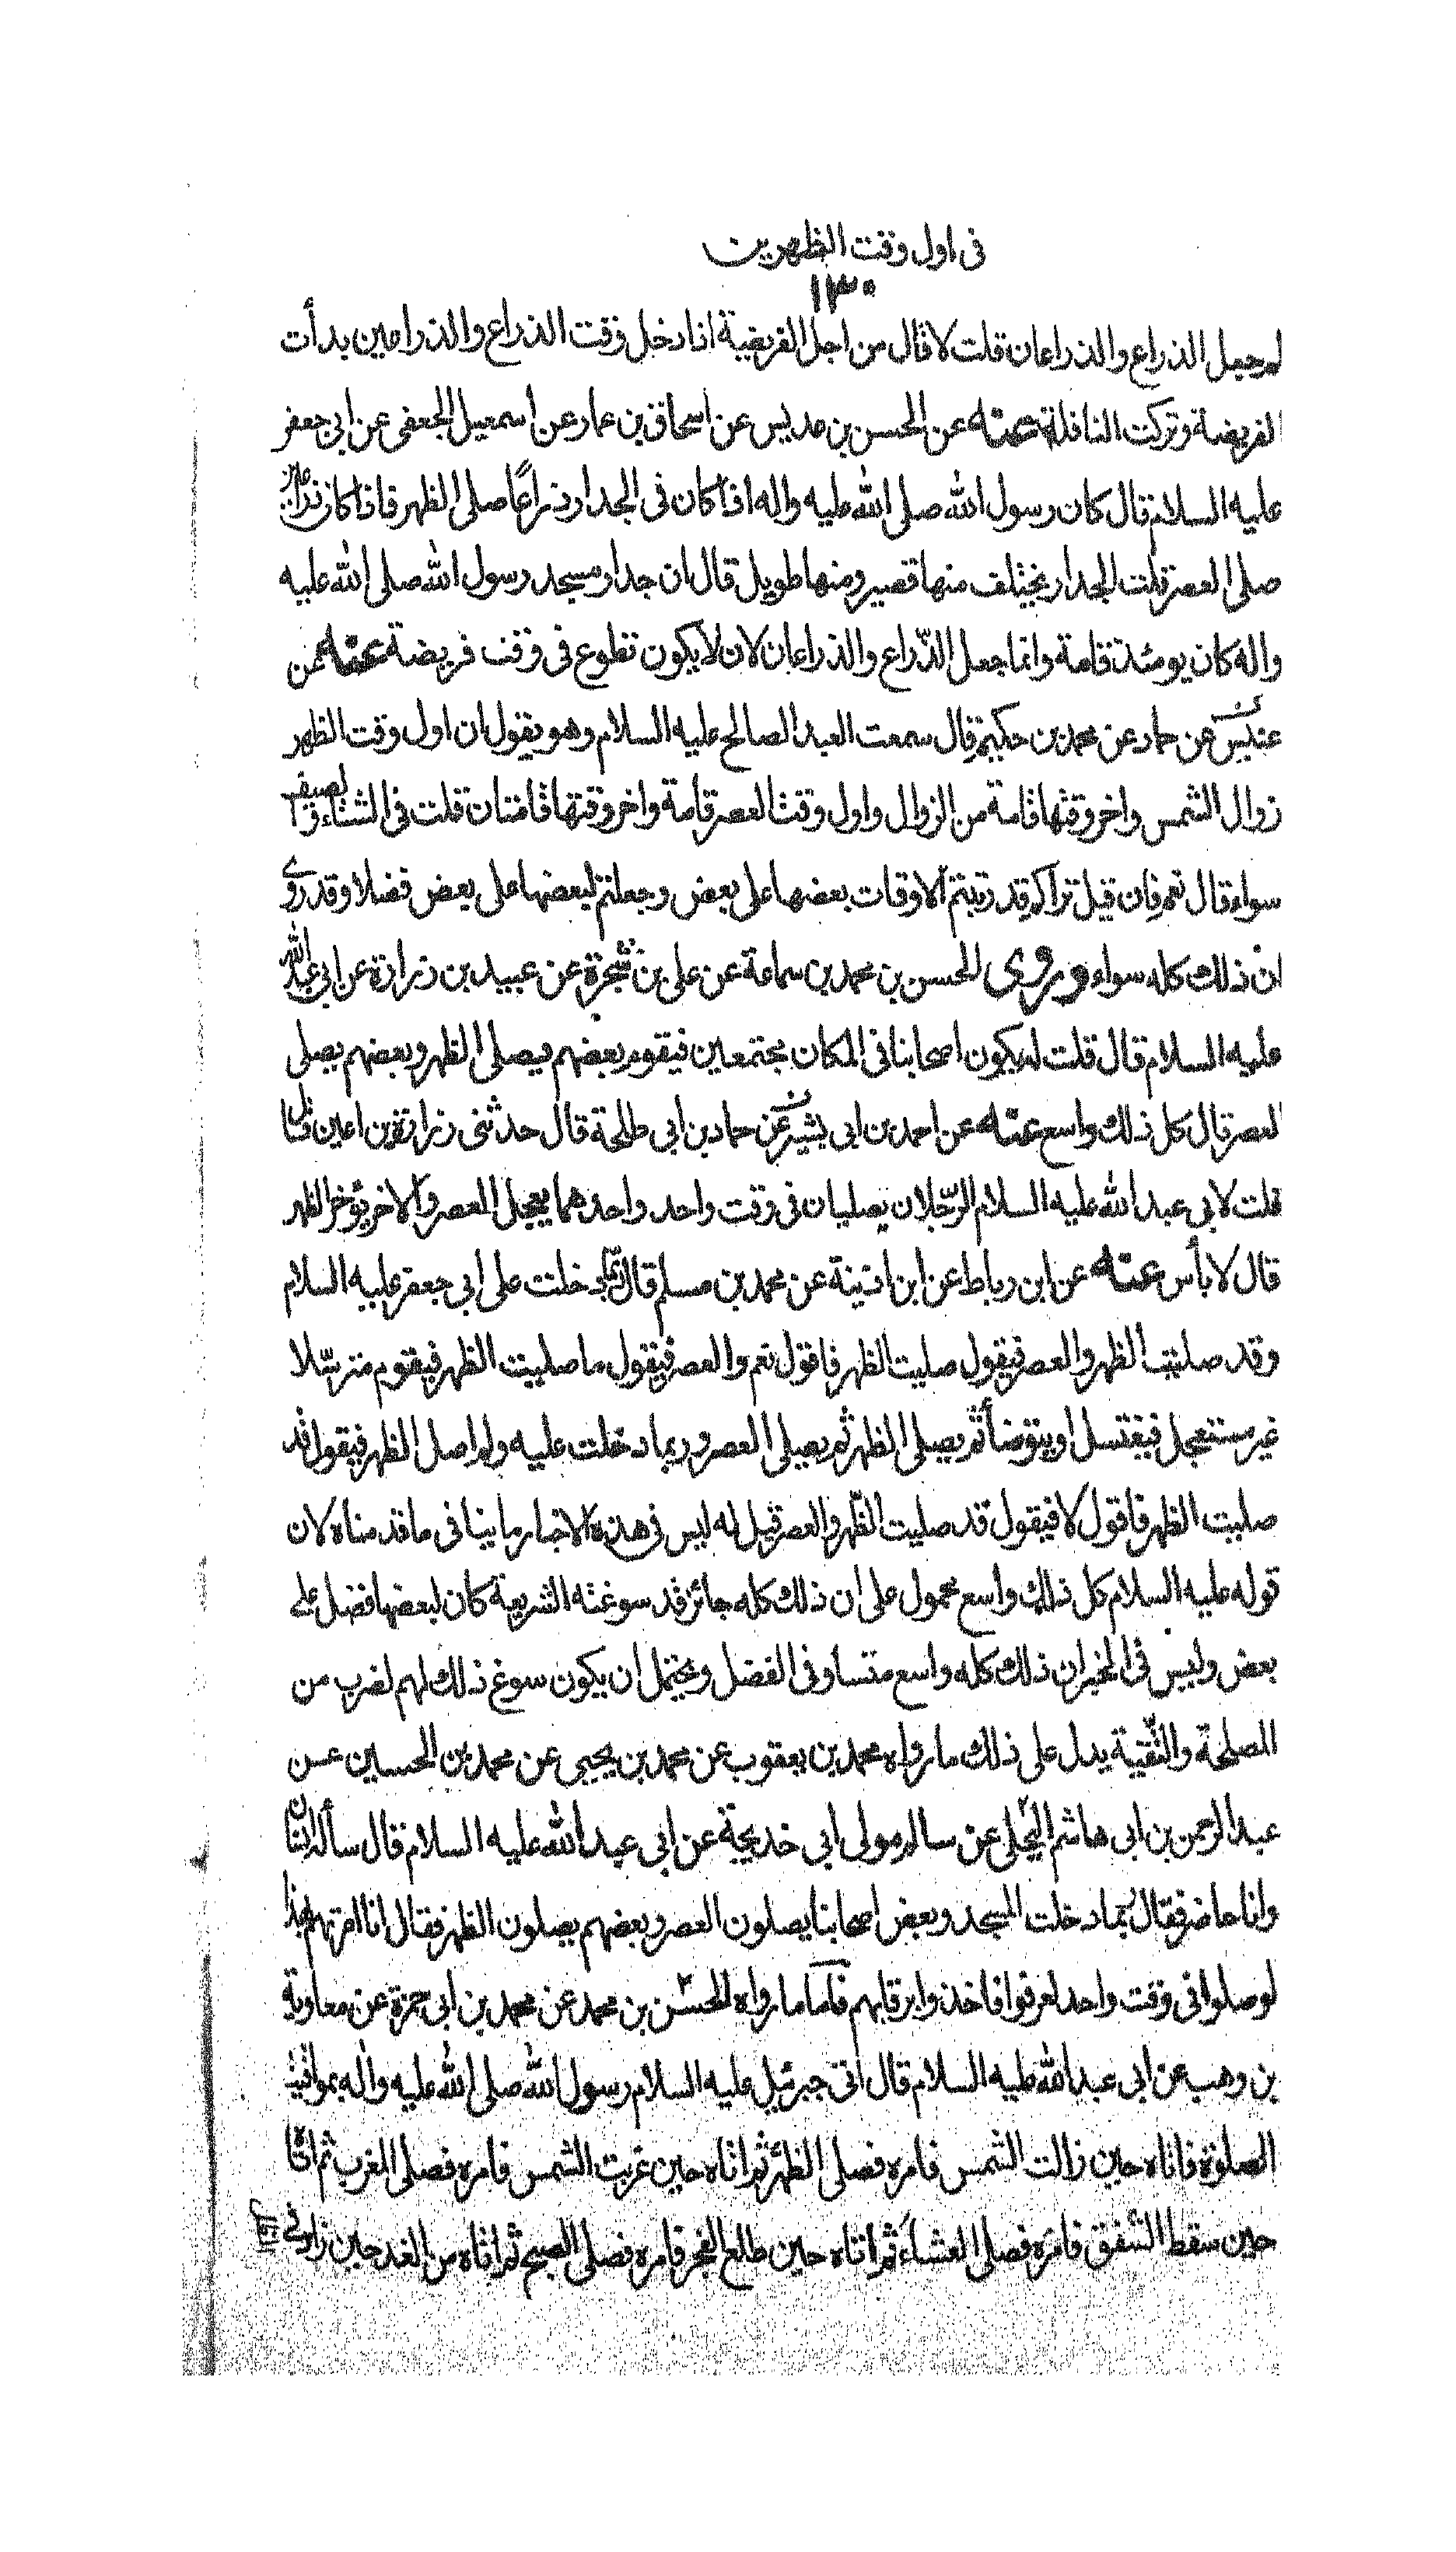 فى اول وقت الظهرين
١٣٠
لم جعل الذراع والذراعان قلت لا قال من اجل الفريضة اذا دخل وقت الذراع والذراعين بدأت
الفريضة وتركت النافلة عنه عن الحسن بن عديس عن اسحاق بن عمار عن اسمعيل الجعفى عن ابى جعفر
عليه السلام قال كان رسول الله صلى الله عليه واله اذا كان فى الجدار ذراعا صلى الظهر فاذا كان ذراعين
صلى العصر قلت الجدار يختلف منها قصير ومنها طويل قال ان جدار مسجد رسول الله صلى الله عليه
واله كان يومئذ قامة وانما جعل الذّراع والذراعان لان لا يكون تطوع فى وقت فريضة عنه عن
عنبس عن حماد عن محمد بن حكيم قال سمعت العبد الصالح عليه السلام وهو يقول ان اول وقت الظهر
زوال الشمس واخر وقتها قامة من الزوال واول وقت العصر قامة واخر وقتها قامتان قلت فى الشتاء والصيف
سواء قال نعم فان قيل تراكم قد رتبتم الاوقات بعضها على بعض وجعلتم لبعضها على بعض فضلا وقد روى
ان ذلك كله سواء وروى الحسن بن محمد بن سماعة عن على بن شجرة عن عبيد بن زرارة عن ابى عبد الله
عليه السلام قال قلت له يكون اصحابنا فى المكان مجتمعين فيقوم بعضهم فيصلى الظهر وبعضهم يصلى
لعصر قال كل ذلك واسع عنه عن احمد بن ابى بشير عن حماد بن ابى طلحة قال حدثنى زرارة بن اعين قال
قلت لابى عبد الله عليه السلام الرّجلان يصليان فى وقت واحد واحدهما يعجل العصر والاخر يؤخر الظهر
قال لا بأس عنه عن ابن رباط عن ابن اذينة عن محمد بن مسلم قال ربما دخلت على ابى جعفر عليه السلام
وقد صليت الظهر والعصر فيقول صليت الظهر فاقول نعم والعصر فيقول ما صليت الظهر فيقوم مترسّلا
غير مستعجل فيغتسل او يتوضأ ثم يصلى الظهر ثم يصلى العصر وربما دخلت عليه ولم اصل الظهر فيقول قد
صليت الظهر فاقول لا فيقول قد صليت الظّهر والعصر قيل له ليس فى هذه الاخبار ما ينافى ما قدمناه لان
قوله عليه السلام كل ذلك واسع محمول على ان ذلك كله جائز قد سوغته الشريعة كان لبعضها فضل على
بعض وليس فى الخبر ان ذلك كله واسع متساو فى الفضل ويحتمل ان يكون سوغ ذلك لهم لضرب من
المصلحة والتّقية يدل على ذلك ما رواه محمد بن يعقوب عن محمد بن يحيى عن محمد بن الحسين عن
عبد الرحمن بن ابى هاشم البجلى عن سالم مولى ابى خديجة عن ابى عبد الله عليه السلام قال سأله انسان
وانا حاضر فقال ربما دخلت المسجد وبعض اصحابنا يصلون العصر وبعضهم يصلون الظهر فقال انا امرتهم بهذا
لو صلوا فى وقت واحد لعرفوا فاخذوا برقابهم فاما ما رواه الحسن بن محمد عن محمد بن ابى حمزة عن معاوية
بن وهب عن ابى عبد الله عليه السلام قال اتى جبرئيل عليه السلام رسول الله صلى الله عليه واله بمواقيت
الصلوة فاتاه حين زالت الشمس فامره فصلى الظهر ثم اتاه حين غربت الشمس فامره فصلى المغرب ثم اتاه
حين سقط الشفق فامره فصلى العشاء ثم اتاه حين طلع الفجر فامره فصلى الصبح ثم اتاه من الغد حين زاد فى